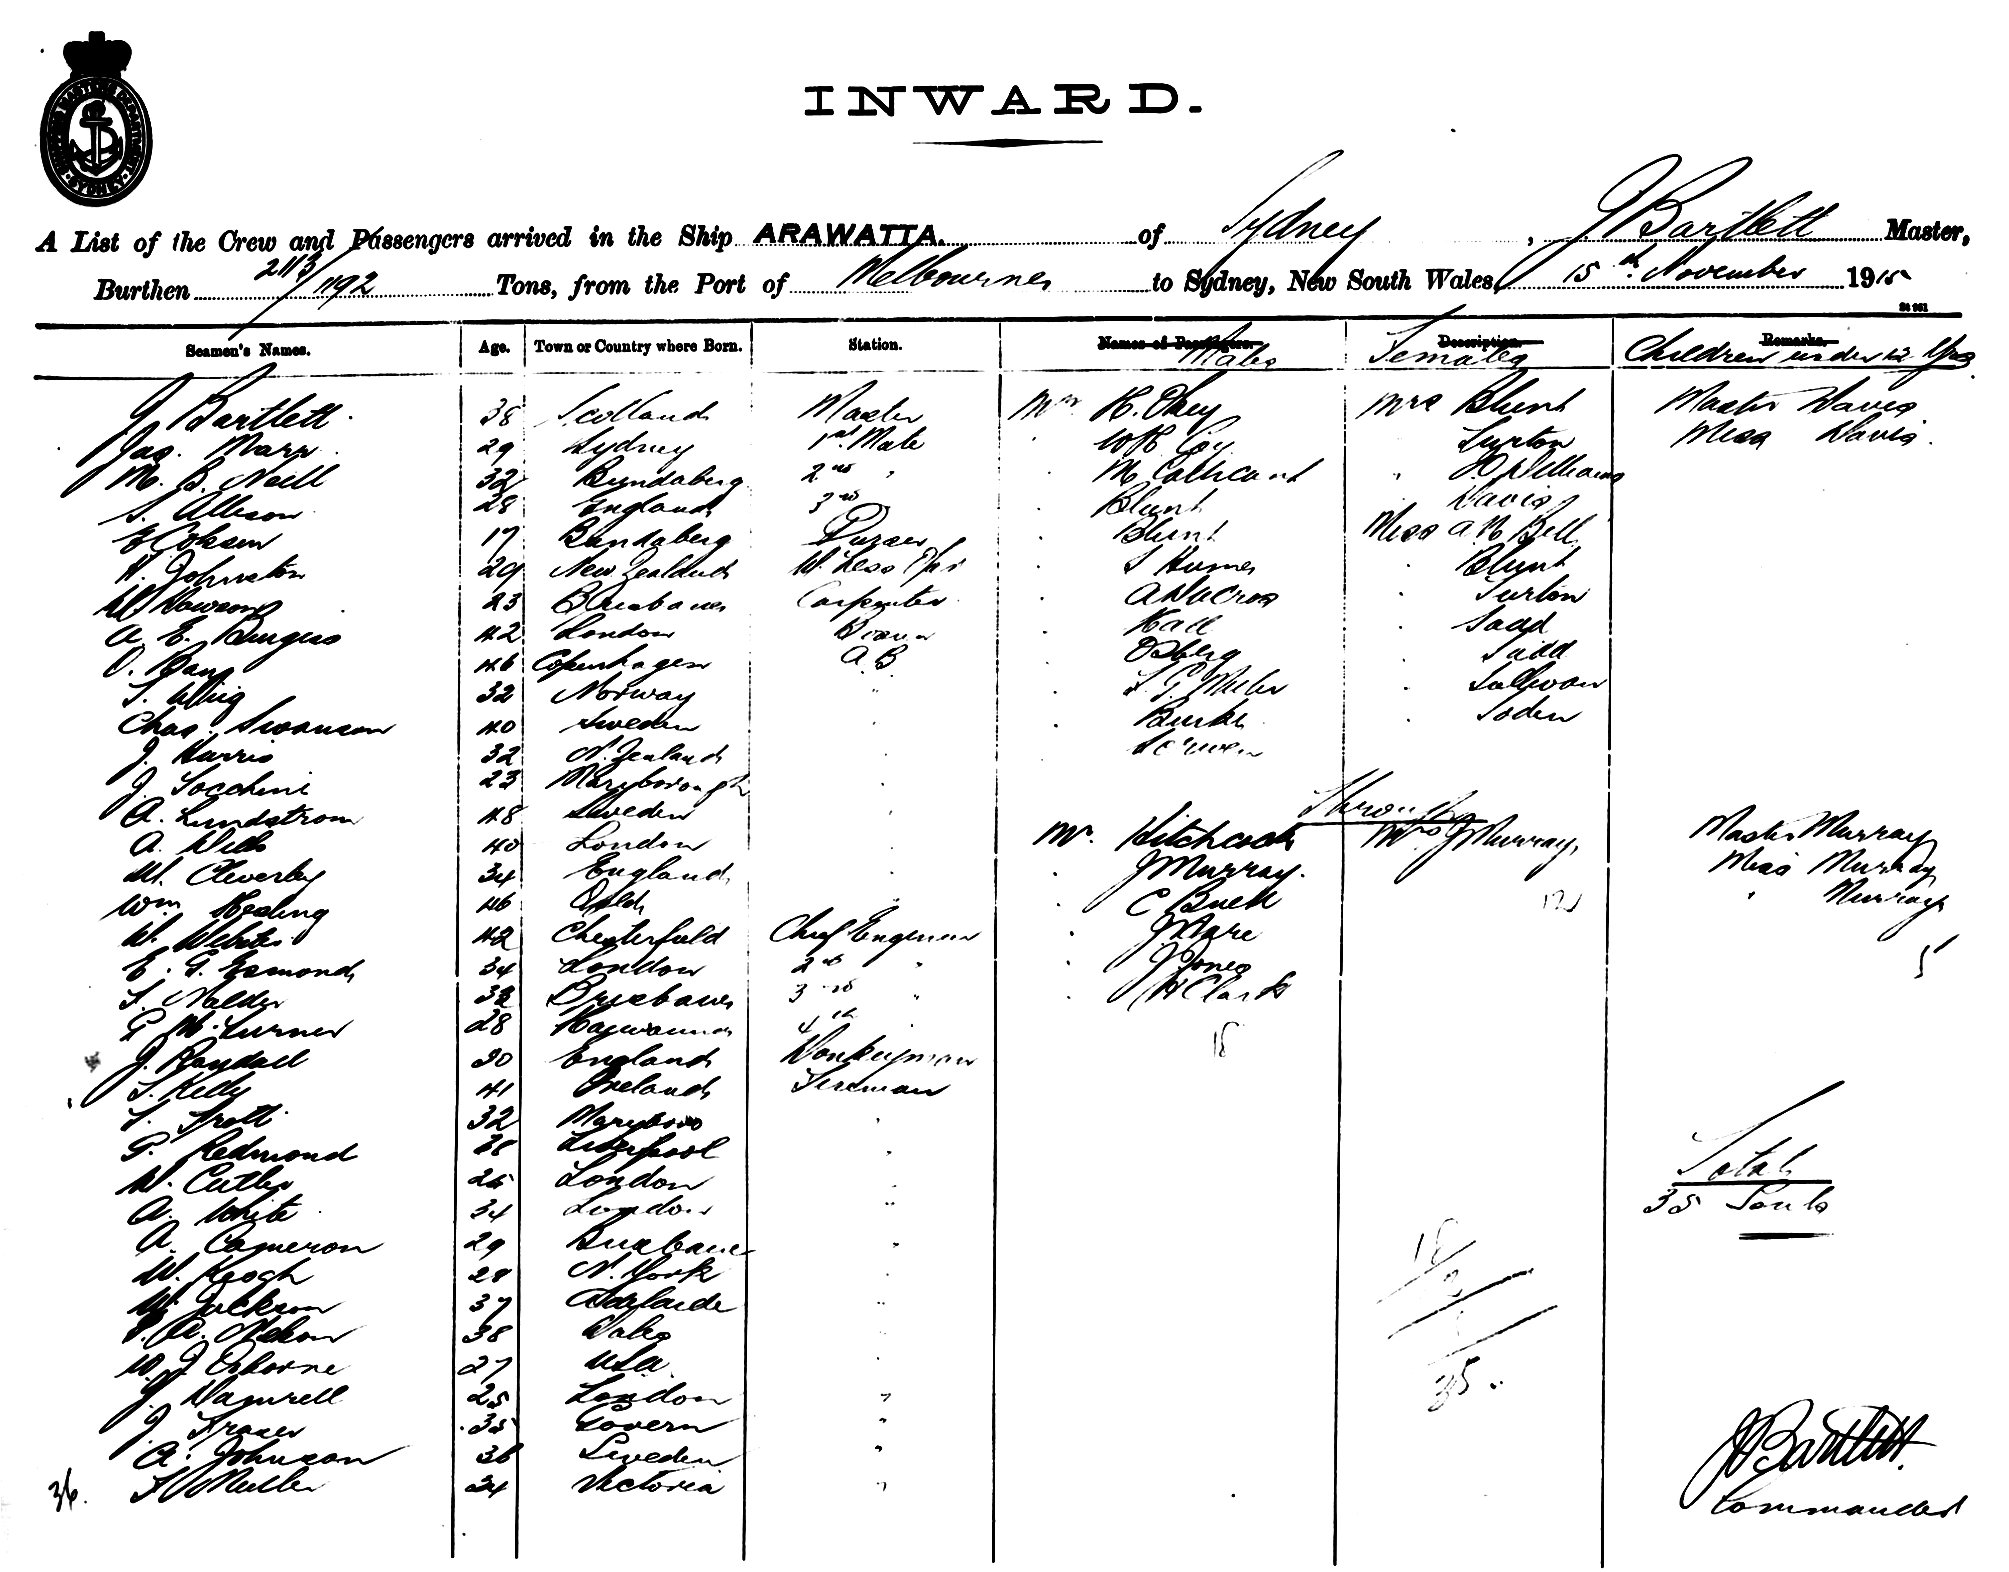 INWARD.
A List of the Crew and Passengers arrived in the Ship ARAWATTA. of Sydney, J Bartlett Master,
Burthen 2113/1192 Tons, from the Port of Melbourne to Sydney, New South Wales, 15th November 1915
Seamen's Names. Age. Town or Country where Born. Station. Names of Passengers. Males Description. Females Remarks. Children under 12 Yrs
J Bartlett. 38 Scotland Master Mr H. Okey Mrs Blunt Master Davis
Jas. Marr 29 Sydney 1st Mate " W H Coy " Surton Miss Davis.
M. B. Neill 32 Bundaberg 2nd " " M Cathcart " Williams
S. Allison 28 England 3rd " Blunt Davis
17 Bundaberg Purser " Blunt Miss A M Bell
Johnston 29 New Zealand W. Less Opr " S Humes " Blunt
W Dawson 23 Brisbane Carpenter " " Surton
A. E. Burgess 42 London Bosun " Hall "
O. Bang 46 Copenhagen A B " Osberg "
32 Norway " " " Sullivan
Chas. Swanson 40 Sweden " " Burke " Soden
J. Harris 32 N. Zealand " "
J. 23 Maryborough "
Through
A. Lundstrom 48 Sweden " Mr. Hitchcock Mrs J Murray, Master Murray
A. Wells 40 London " " J Murray. Miss Murray
W. Cleverley 34 England " " C Buck 12 " Murray
Wm 46 Qld " " J. Ware 5
W. Webster 42 Chesterfield Chief Engineer " J Jones
E. G. Esmond 34 London 2nd " " H Clark
S. Nalder 32 Brisbane 3rd " 18
G M. Turner 28 4th "
J. Randall 30 England Donkeyman
T. Kelly 41 Ireland Fireman
32 Maryboro "
G. Redmond 38 Liverpool "
W. Cutler 25 London " Total
A. White 34 London " 35 Souls
A. Cameron 29 Brisbane " 18
W. Keogh 28 N. York "
W. Jackson 37 Adelaide "
A. Nelson 38 Wales "
W. J Osborne 27 USA "
J. 25 London " 35.
J. Fraser 35 Govern "
A. Johnson 36 Sweden " J Bartlett.
36. Muller 24 Victoria " Commander